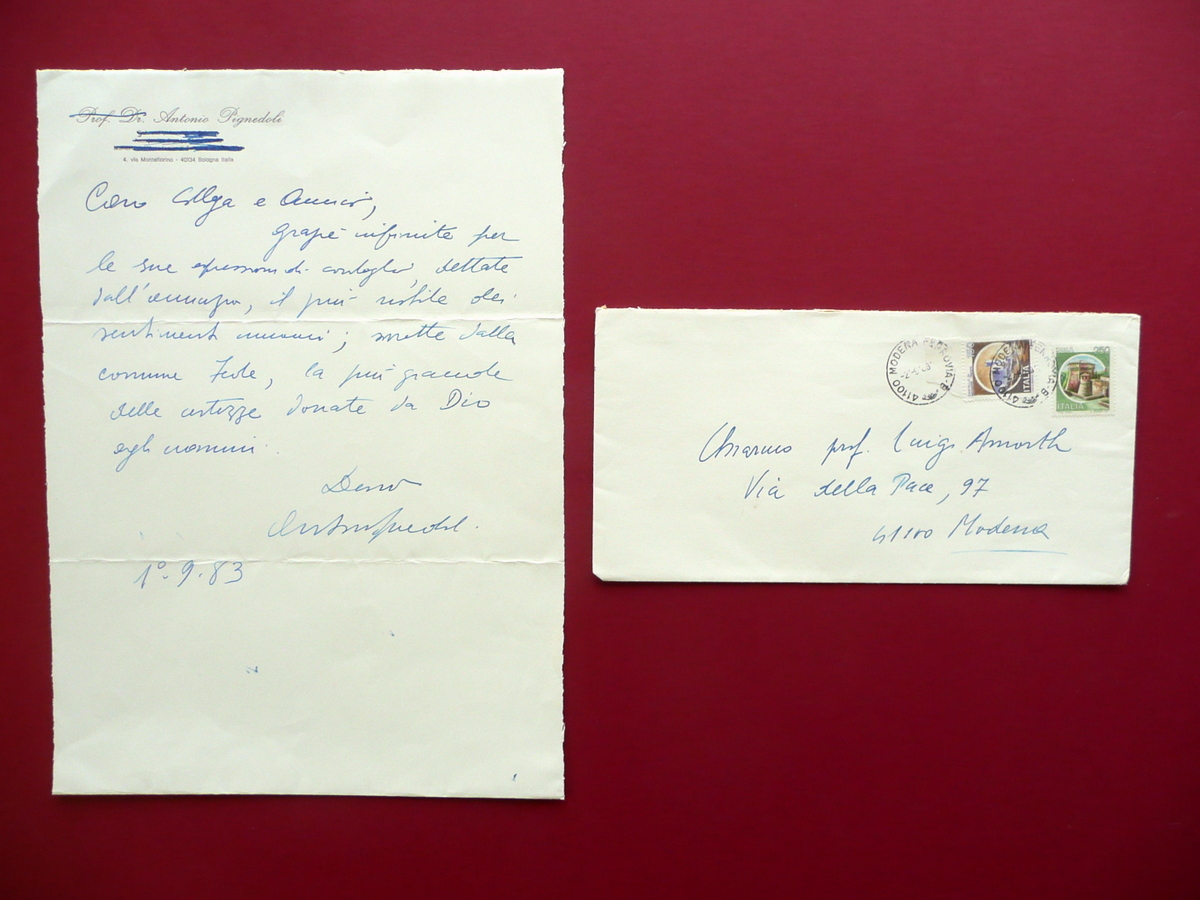 Prof. Dr. Antonio Pignedoli
4, via Montefiorino - 40134 Bologna Italia
Caro Collega e Amico,
grazie infinite per
le sue espressioni di cordoglio, dettate
dall'amicizia, il più nobile dei
sentimenti umani; sorrette dalla
comune Fede, la più grande
delle certezze donate da Dio
agli uomini.
Devmo
Antonio Pignedoli
1°.9.83
41100 MODENA FERROVIA
41100 MODENA FERROVIA
ITALIA
250
ITALIA
Chiarmo prof. Luigi Amorth
Via della Pace, 97
41100 Modena